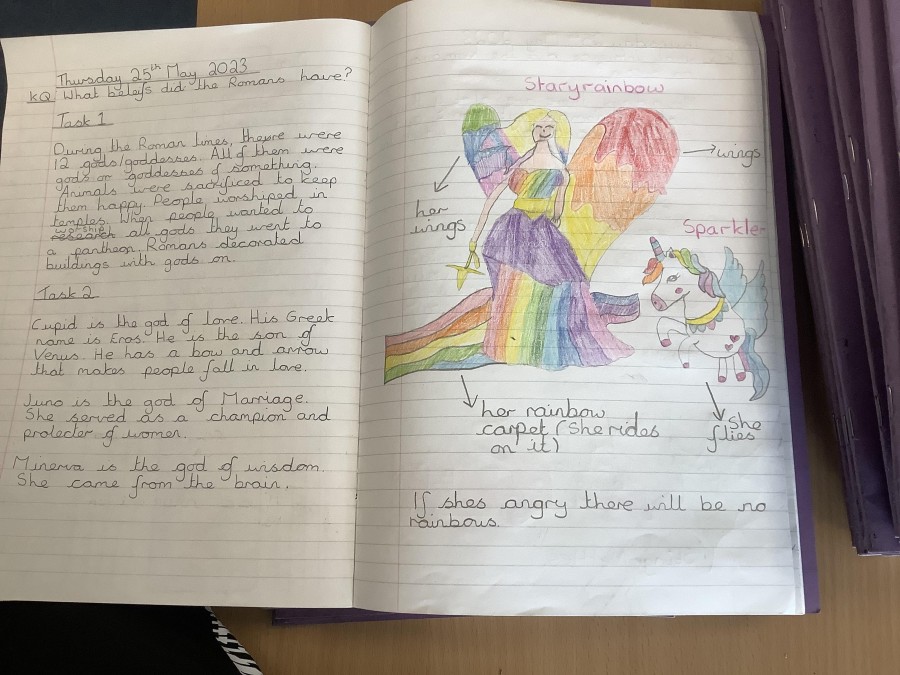 Thursday 25th May 2023
KQ What beleifs did the Romans have?
Task 1
During the Roman times, theure were
12 gods/goddesses. All of them were
gods or goddesses of something.
Animals were sacrificed to keep
them happy. People worshiped in
temples. When people wanted to
worship
research all gods they went to
a pantheon. Romans decorated
buildings with gods on.
Task 2
Cupid is the god of love. His Greek
name is Eros. He is the son of
Venus. He has a bow and arrow
that makes people fall in love.
Juno is the god of Marriage.
She served as a champion and
protecter of women.
Minerva is the god of wisdom.
She came from the brain.
Staryrainbow
wings
her
wings
Sparkler
her rainbow
carpet (She rides
on it)
She
flies
If shes angry there will be no
rainbows.